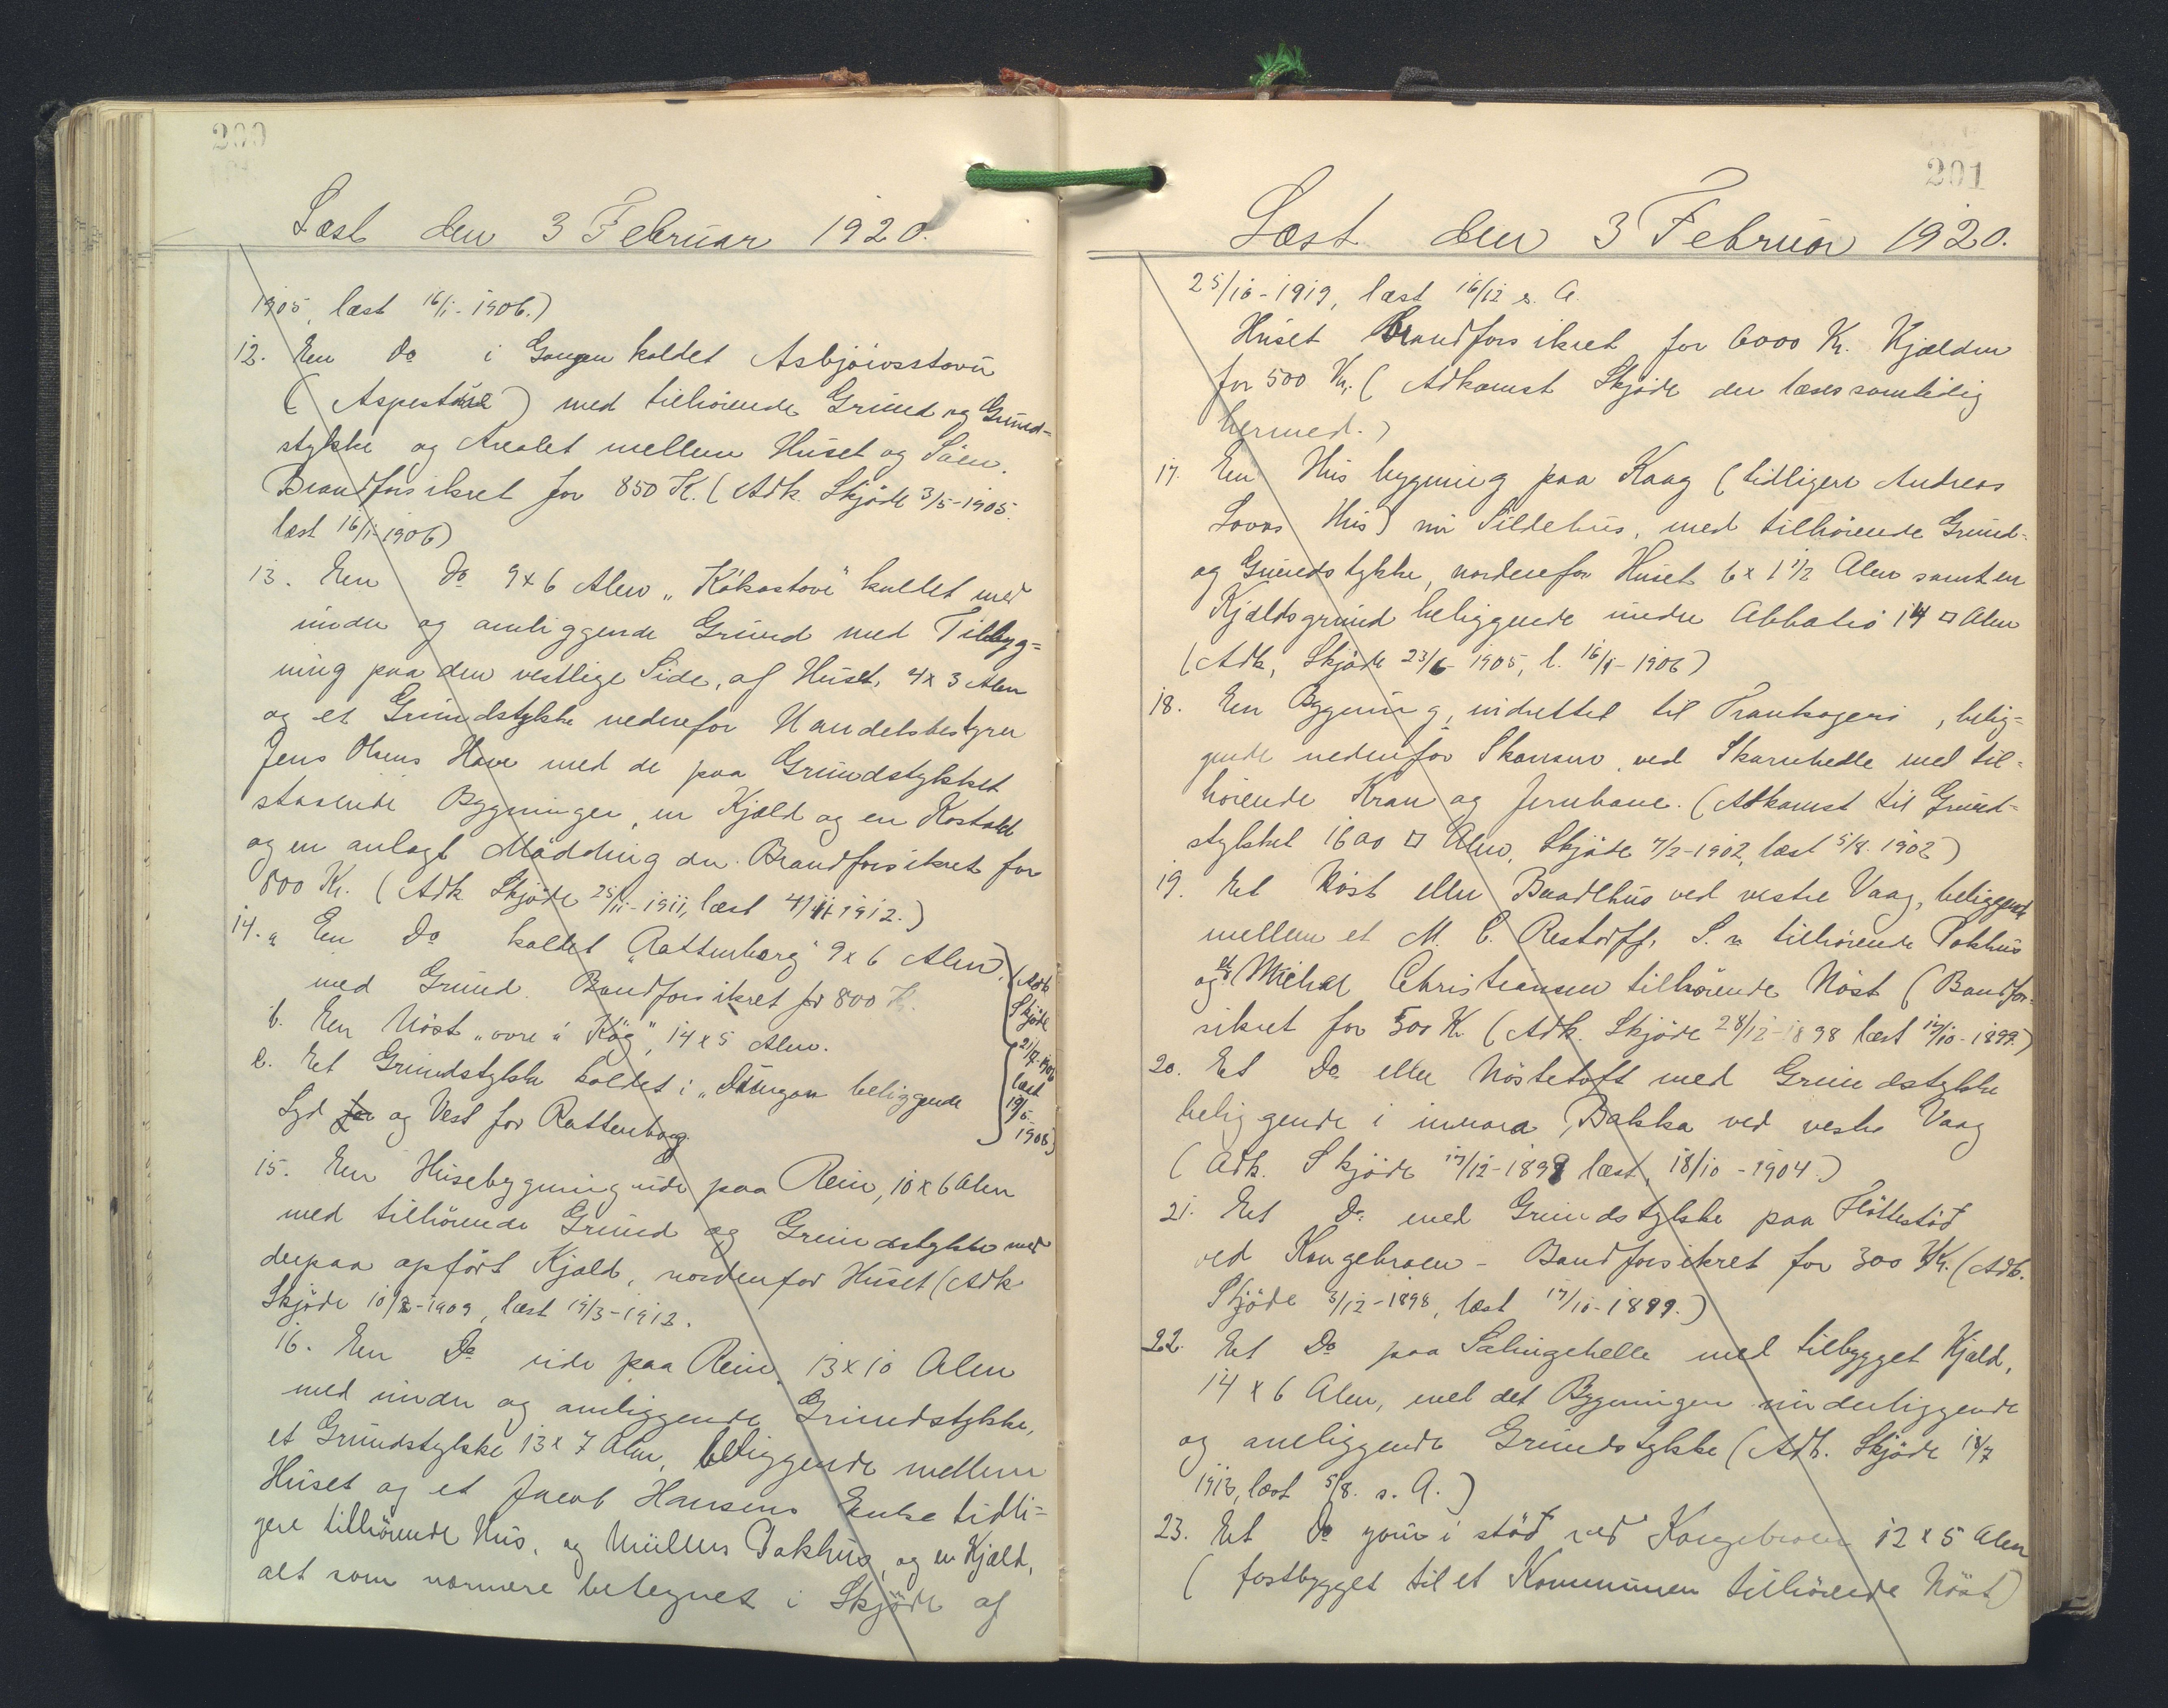 200
Læst den 3 Februar 1920.
1905, læst 16/1-1906.)
12. En Do i Gongen kaldet Asbjöinsstovu
( Aspestue ) med tilhörende Grund og Grund-
stykke og Arealet mellem Huset og Söen.
Brandforsikret for 850 K. ( Adk Skjöde 3/5-1905.
læst 16/1-1906)
13. En Do 9x6 Alen „Kókastove" kaldet med
under og omliggende Grund med Tilbyg=
ning paa den vestlige Side, af Huset, 4x3 Alen
og et Grundstykke nedenfor Handelsbestyrer
Jens Olsens Have med de paa Grundstykket
staaende Bygninger, en Kjæld og en Kostald
og en anlagt Mödding der. Brandforsikret for
800 Kr. (Adk Skjöde 25/11-1911, læst 1912.)
14. a En Do kaldet „Rattenborg" 9x6 Alen,
med Grund. Bandforsikret for 800 K.
b. En Nöst „ovre á Kág", 14x5 Alen.
c. Et Grundstykke kaldet i „ beliggende
Syd for og Vest for Rattenborg.
(Adk
Skjöde
læst
19/5-
1908)
15. En Husebygning ude paa Rein, 10x6 Alen
med tilhörende Grund og Grundstykke med
derpaa opfört Kjæld, nordenfor Huset (Adk
Skjöde 10/8-1909, læst 19/3-1912.
16. En Do ude paa Rein 13x10 Alen
med under og omliggende Grundstykke,
et Grundstykke 13x7 Alen, beliggende mellem
Huset og et Jacob Hansens Enke tidli=
gere tilhörende Hus, og Müllers Pakhus, og en Kjæld,
alt som nærmere betegnet i Skjöde af
201
Læst den 3 Februar 1920.
25/10-1919, læst 16/12 s. A.
Huset Brandforsikret for 6000 Kr. Kjælden
for 500 Kr. ( Adkomst Skjöde der læses samtidig
hermed. )
17. En Hus bygning paa Kaag (tidligere Andreas
Lovas Hus) nu Sildehus, med tilhörende Grund-
og Grundstykke, nordenfor Huset 6x1 1/2 Alen samt en
Kjældsgrund beliggende under 14 □ Alen
(Adk, Skjöde 23/6-1905, l. 16/1-1906)
18. En Bygning, indrettet til Trankogeri, belig=
gende nedenfor Skansen, ved Skarnhelle med til=
hörende Kran og Jernbane. (Adkomst til Grund=
stykket 1600 □ Alen, Skjöde 4/2-1902, læst 5/8. 1902)
19. Et Nöst eller Baadehus ved vestre Vaag, beliggende
mellem et M. C. Restorff, S.n tilhörende Pakhus
og et Michael Christiansen tilhörende Nöst (Bandfor-
sikret for 500 K (Adk. Skjöde 28/12-1898 læst 17/10-1899.)
20. Et Do eller Nöstetoft med Grundstykke
beliggende i innara Bakka ved vestre Vaag
( Adk. Skjöde 17/12-1898 læst, 18/10-1904.)
21. Et Do med Grundstykke paa Flöttestöd
ved Kongebroen - Bandforsikret for 300 Kr. (Adk.
Skjöde 3/12-1898, læst 17/10-1899.)
22. Et Do paa Salingehelle med tilbygget Kjæld,
14 x 6 Alen, med det Bygningen underliggende
og omliggende Grundstykke (Adk. Skjöde 18/7
1913, læst 5/8. s. A.)
23. Et Do i stöd ved Kongebroen 12x5 Alen
( fastbygget til et Kommunen tilhörende Nöst)